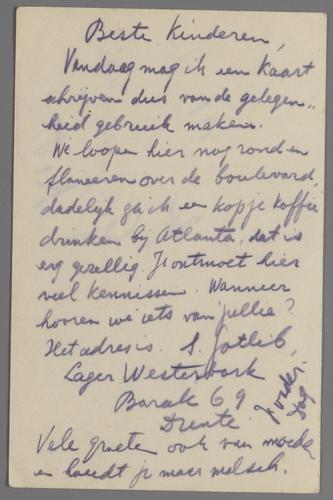 Beste Kinderen,
Vandaag mag ik een kaart
schrijven dus van de gelegen„
heid gebruik maken.
We loopen hier nog rond en
flaneeren over de boulevard,
dadelijk ga ik een kopje koffie
drinken bij Atlanta, dat is
erg gezellig. Je ontmoet hier
veel kennissen. Wanneer
hooren we iets van jullie?
Het adres is. S. Gotlib,
Lager Westerbork
Barak 69
Drente.
Vele groete ook van moeder
en houdt je maar